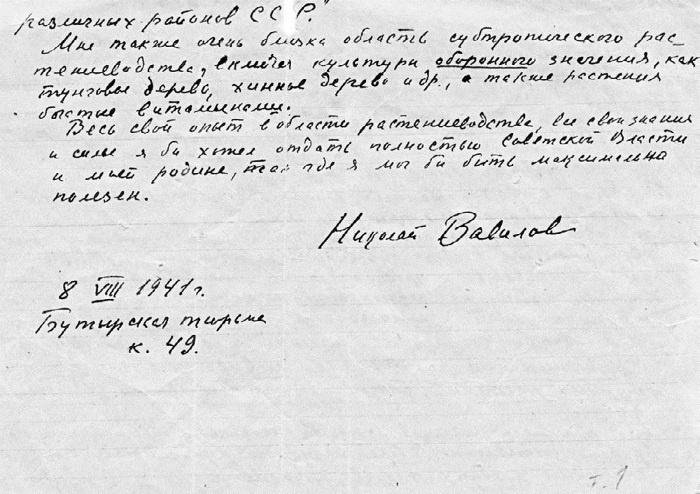 различных районов СССР."
Мне также очень близка область субтропического рас-
тениеводства, включая культуры оборонного значения, как
тунговое дерево, хинное дерево и др., а также растения
богатые витаминами.
Весь свой опыт в области растениеводства, все свои знания
и силы я бы хотел отдать полностью Советской Власти
и моей родине, там где я мог бы быть максимально
полезен.
Николай Вавилов
8 VIII 1941 г.
Бутырская тюрьма
к. 49.
т. 1